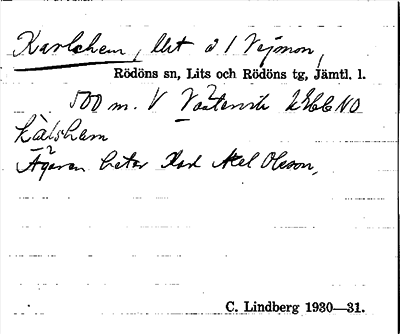 Karlshem, lht å 1 Vejmon,
Rödöns sn, Lits och Rödöns tg, Jämtl. l.
500 m. V
kàlshem
Ägaren heter Karl Axel Olsson,
C. Lindberg 1930—31.